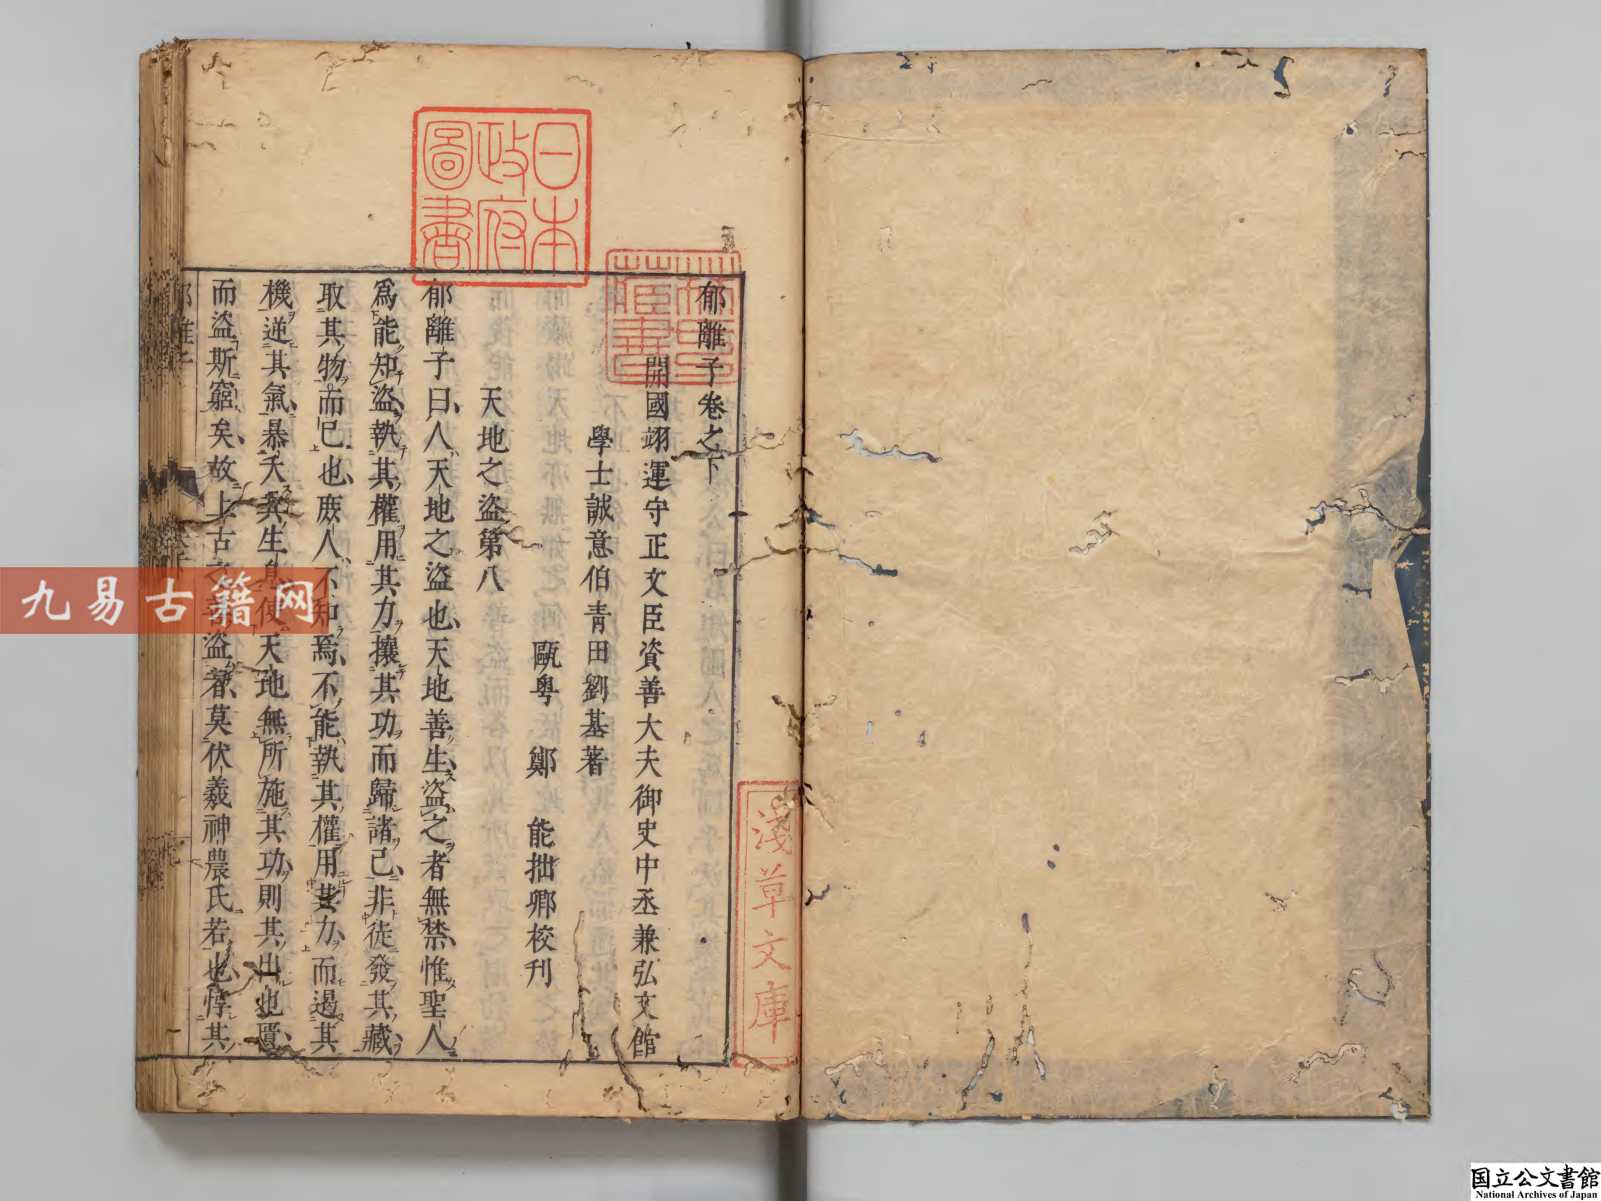 郁離子卷之下
開國翊運守正文臣資善大夫御史中丞兼弘文館
學士誠意伯青田劉基著
甌粤鄭能拙卿校刋
天地之盜第八
郁離子曰人天地之盜也天地善生盜之者無禁惟聖人
爲能知盜執其權用其力攘其功而歸諸己非徒發其藏
取其物而已也庻人不知焉不能執其權用其力而遏其
機逆其氣暴夭其生息使天地無所施其功則其出也匱
而盜斯窮矣故上古之善盜者莫伏羲神農氏若也惇其
日本
政府
圖書
淺草文庫
九易古籍网
国立公文書館
National Archives of Japan